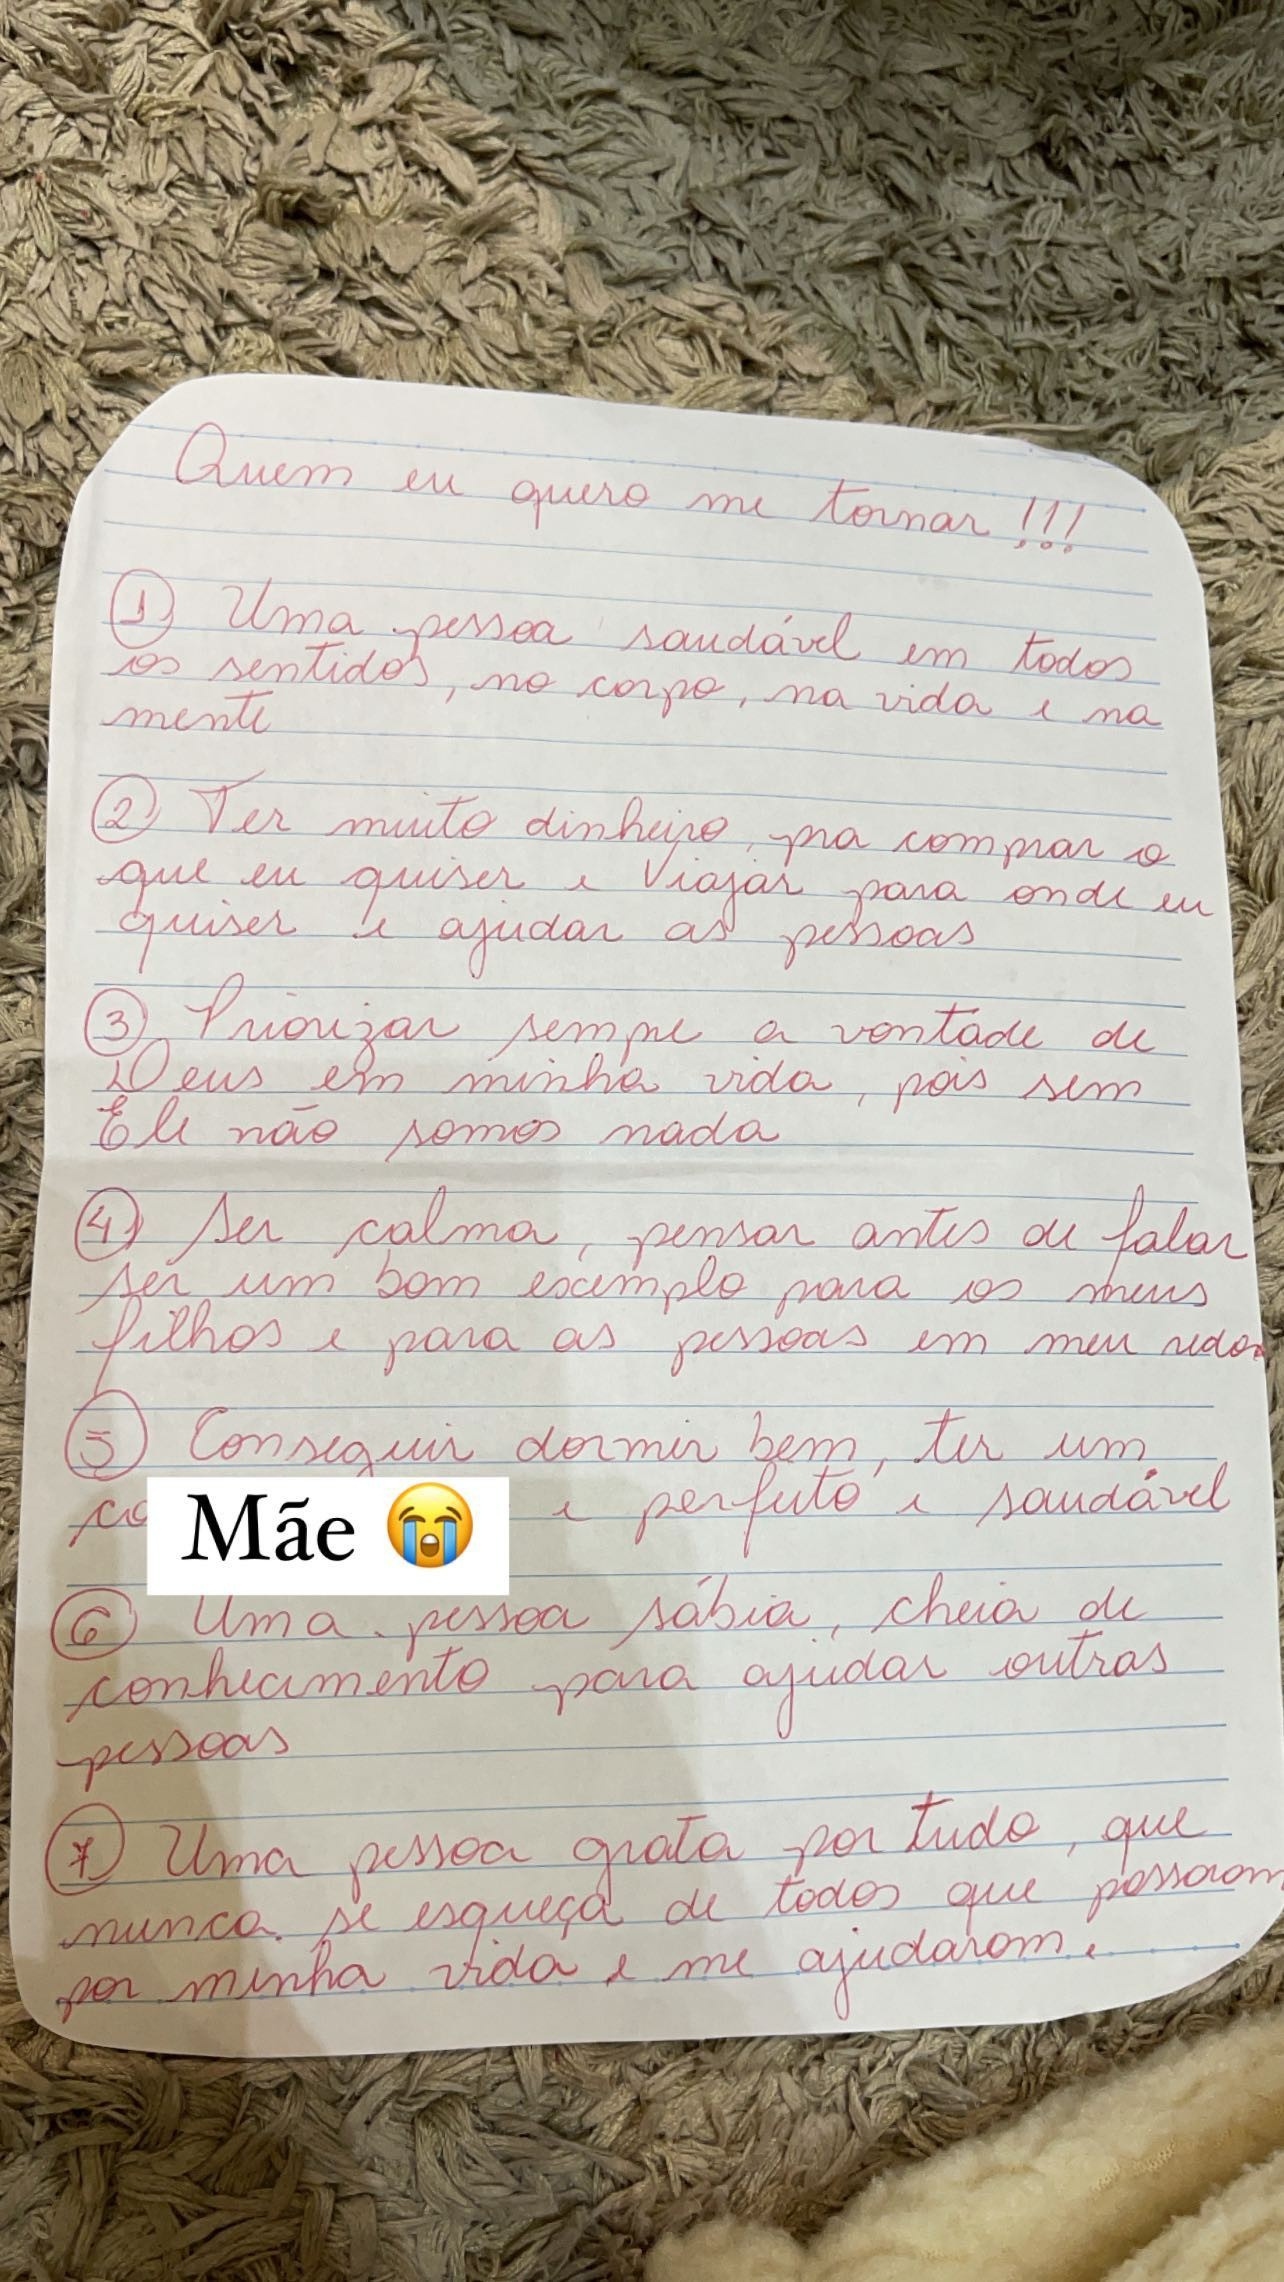 Quem eu quero me tornar!!!
1) Uma pessoa saudável em todos
os sentidos, no corpo, na vida e na
mente
2) Ter muito dinheiro, pra comprar o
que eu quiser e Viajar para onde eu
quiser e ajudar as pessoas
3) Priorizar sempre a vontade de
Deus em minha vida, pois sem
Ele não somos nada
4) Ser calma, pensar antes de falar
ser um bom exemplo para os meus
filhos e para as pessoas em meu redor
5) Conseguir dormir bem, ter um
e perfeito e saudável
Mãe 😭
6) Uma pessoa sábia, cheia de
conhecimento para ajudar outras
pessoas
7) Uma pessoa grata por tudo, que
nunca se esqueça de todos que passaram
por minha vida e me ajudaram.